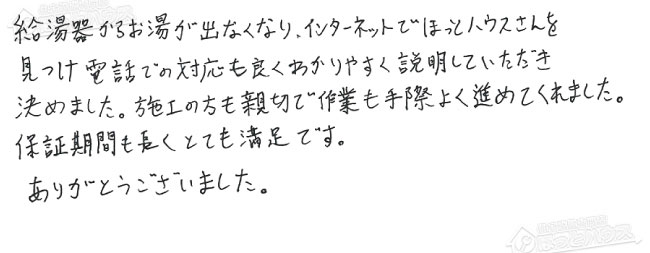 給湯器からお湯が出なくなり、インターネットでほっとハウスさんを
見つけ電話での対応も良くわかりやすく説明していただき
決めました。施工の方も親切で作業も手際よく進めてくれました。
保証期間も長くとても満足です。
ありがとうございました。
ほっとハウス